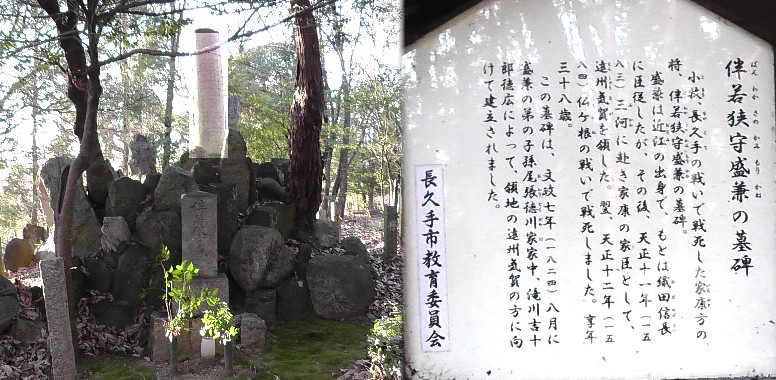 伴若狭守盛兼の墓碑
ばん わか さの かみ もり かね
小牧・長久手の戦いで戦死した家康方の
将、伴若狭守盛兼の墓碑。
盛兼は近江の出身で、もとは織田信長
に臣従したが、その後、天正十一年（一五
八三）三河に赴き家康の家臣として、
遠州気賀を領した。翌、天正十二年（一五
八四）仏ヶ根の戦いで戦死しました。享年
三十八歳。
この墓碑は、文政七年（一八二四）八月に
盛兼の弟の子孫尾張徳川家家中、滝川吉十
郎徳広によって、領地の遠州気賀の方に向
けて建立されました。
長久手市教育委員会